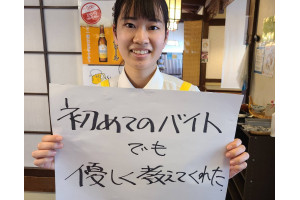 初めてのバイト
でも
優しく教えてくれた